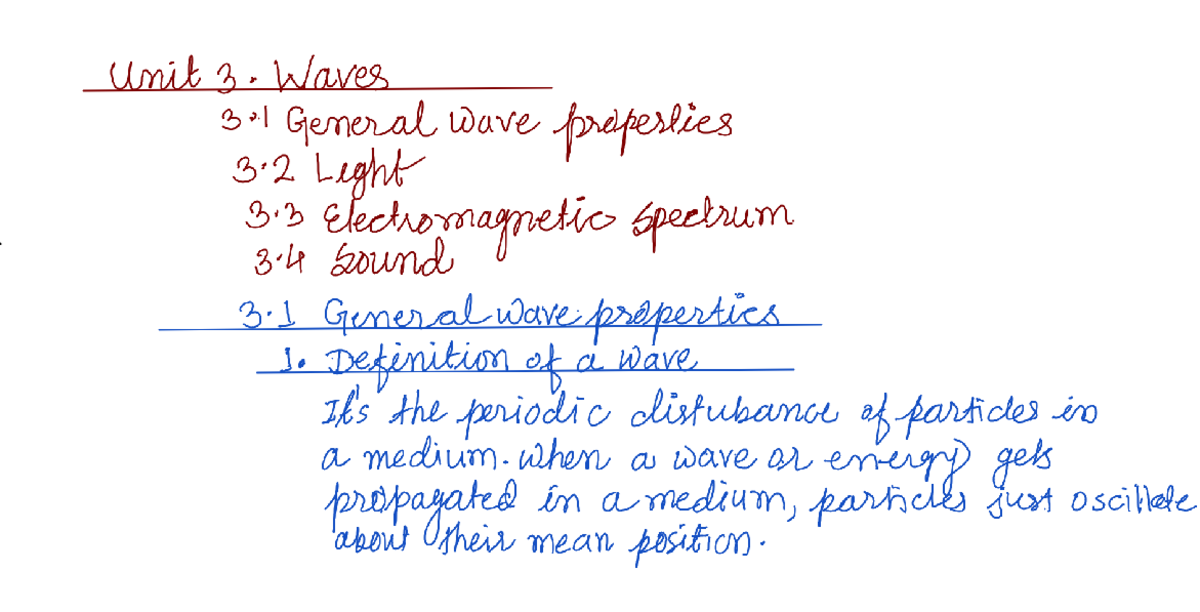 Unit 3. Waves
3.1 General wave properties
3.2 Light
3.3 Electromagnetic spectrum
3.4 Sound
3.1 General wave properties
1. Definition of a wave
It's the periodic distubance of particles in
a medium. when a wave or energy gets
propagated in a medium, particles just oscillate
about their mean position.